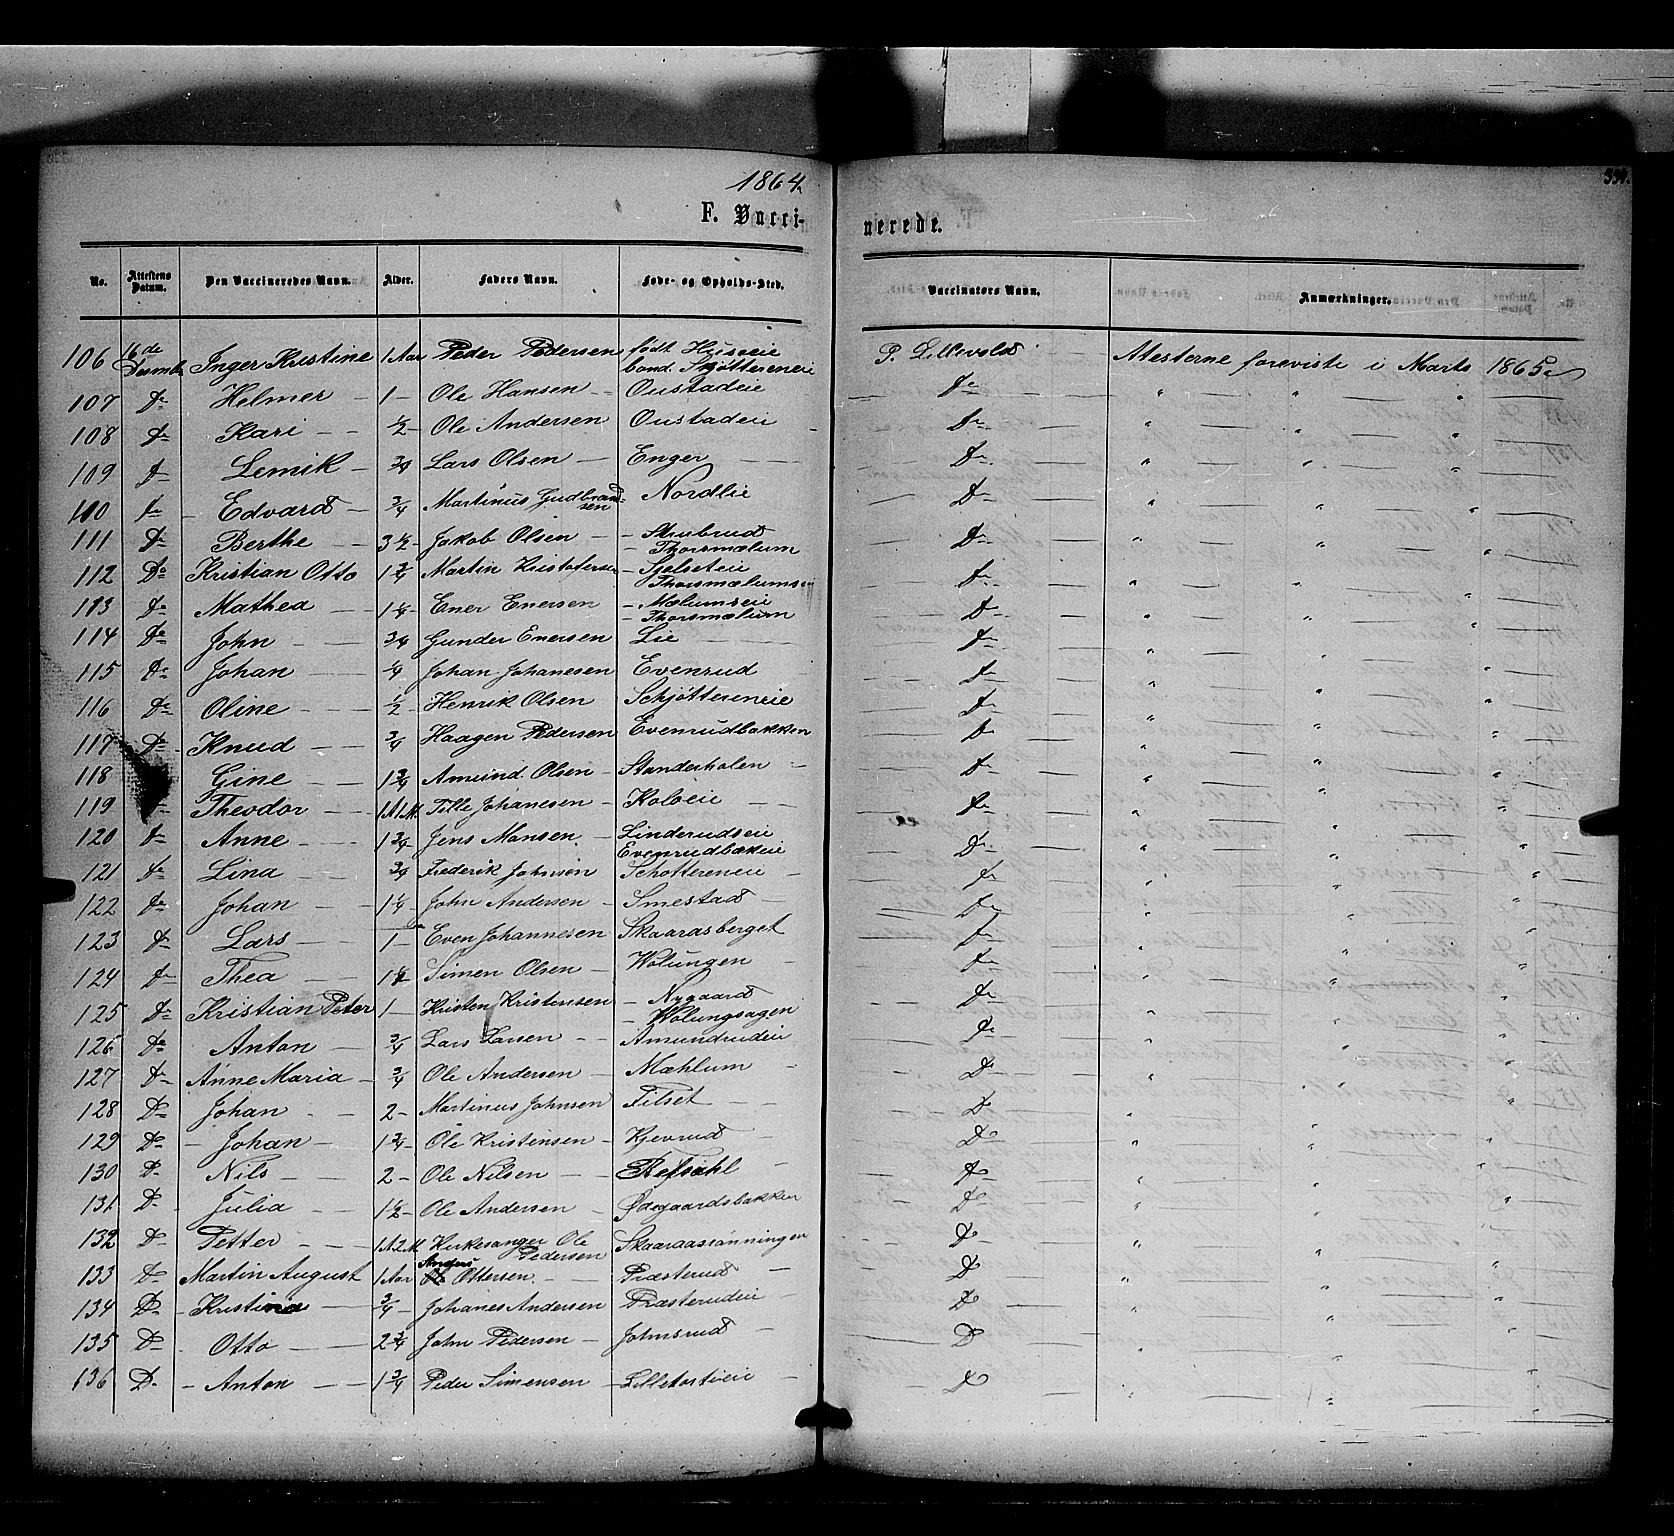 1864
F. Vacci-
nerede.
334.
No. Attestens Datum. Den Vaccineredes Navn. Alder. Faders Navn. Føde- og Opholds-Sted. Vaccinators Navn. Anmærkninger.
106 16de Inger Kristine 1 Aar Peder Pedersen født Huseie P. Lillevold Atesterne foreviste i Marts 1865
boend. Skjøttereneie
107 Do Helmer 1 Ole Hansen Oustadeie Do " " "
108 Do Kari ½ Ole Andersen Oustadeie Do " " "
109 Do Lemik ¾ Lars Olsen Enger Do " " "
110 Do Edvard ¾ Martinus Gudbrandsen Nordlie Do " " "
111 Do Berthe 3 ½ Jakob Olsen Stubrud Do " " "
Thorsmælum
112 Do Kristian Otto 1 ¾ Martin Kristofersen Sjelseteie Do " " "
Thorsmælumsei
113 Do Mathea 1 ¼ Ener Enersen Mælumseie Do " " "
Thorsmælum
114 Do John ¾ Gunder Enersen Lie Do " " "
115 Do Johan ¼ Johan Johanesen Evenrud Do " " "
116 Do Oline ½ Henrik Olsen Schjøttereneie Do " " "
117 Do Knud ¾ Haagen Pedersen Evenrudbakken Do " " "
118 Gine 1 ¾ Amund Olsen Standerholen Do " " "
119 Theodor 1 A 1 M. Tille Johanesen Koloeie Do " " "
120 Do Anne 1 ¾ Jens Mansen Linderudseie Do " " "
Evenrudbakeie
121 Do Lina ¾ Frederik Johnsen Schottereneie Do " " "
122 Do Johan 1 ¼ John Andersen Smestad Do " " "
123 Do Lars 1 Even Johannesen Skaarasberget Do " " "
124 Do Thea 1 ½ Simen Olsen Wolungen Do " " "
125 Do Kristian Peter 1 Kristen Kristensen Nygaard Do " " "
Wolungsagen
126 Do Anton ¾ Lars Larsen Amundrudeie Do " " "
127 Do Anne Maria ¾ Ole Andersen Mæhlum Do " " "
128 Do Johan 2 Martinus Johnsen Tilset Do " " "
129 Do Johan 1 ¾ Ole Kristensen Kjevrud Do " " "
130 Do Nils 2 Ole Nilsen Refsahl Do " " "
131 Do Julia 1 ½ Ole Andersen Ødegaardsbakken Do " " "
132 Do Petter 1 A 2 M Kirkesanger Ole Pedersen Skaaraasrønningen Do " " "
133 Do Martin August 1 Aar Anders Ottersen Præsterud Do " " "
134 Do Kristina ¾ Johanes Andersen Præsterudeie Do " " "
135 Do Otto 2 ¾ John Pedersen Johnsrud Do " " "
136 Do Anton 1 ¾ Peder Simensen Lilletorsteie Do " " "